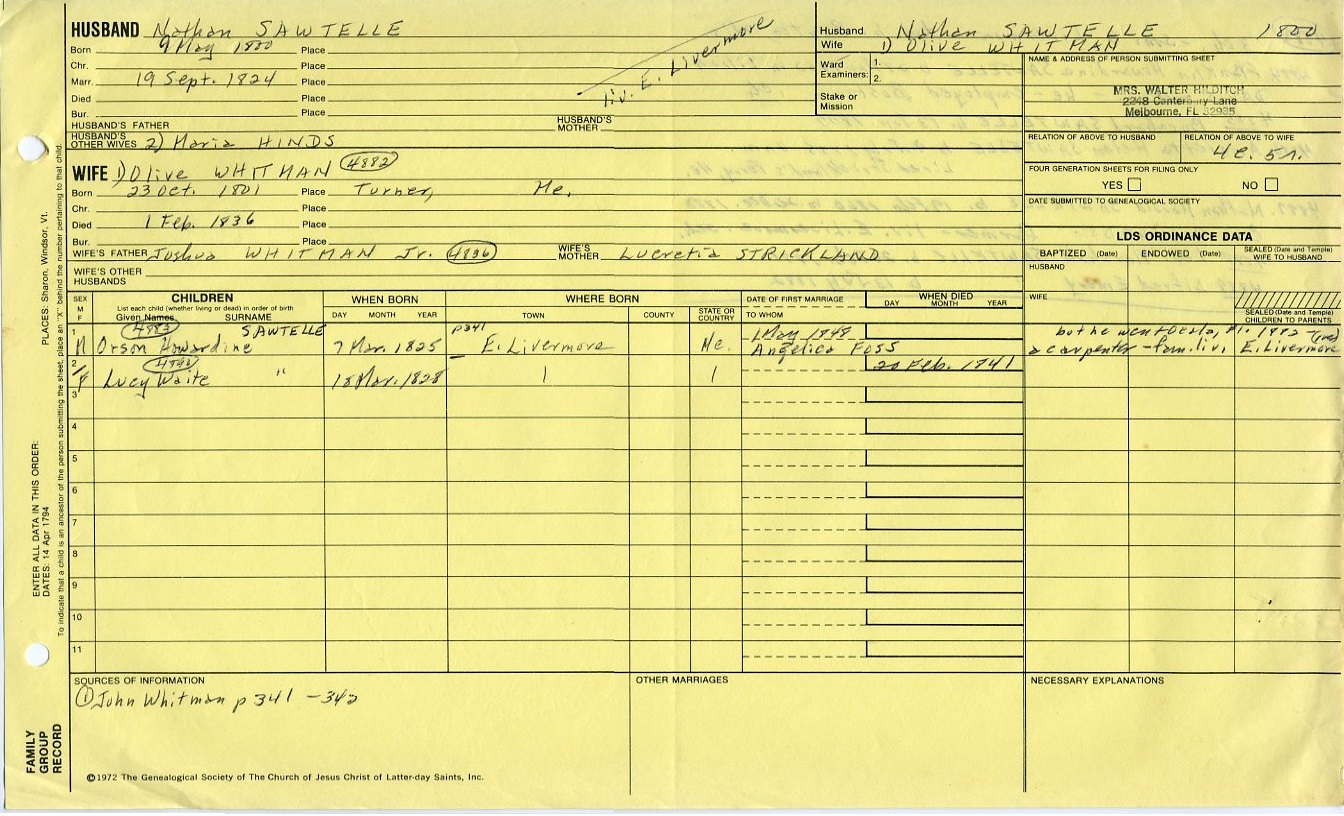 HUSBAND Nathan SAWTELLE
Born 9 May 1800 Place
Chr. Place
Marr. 19 Sept. 1824 Place
Died Place
Bur. Place
liv. E. Livermore
HUSBAND'S FATHER
HUSBAND'S MOTHER
HUSBAND'S OTHER WIVES 2) Maria HINDS
WIFE 1) Olive WHITMAN 4882
Born 23 Oct. 1801 Place Turner, Me.
Chr. Place
Died 1 Feb. 1836 Place
Bur. Place
WIFE'S FATHER Joshua WHITMAN Jr. 4836
WIFE'S MOTHER Lucretia STRICKLAND
WIFE'S OTHER HUSBANDS
Husband Nathan SAWTELLE 1800
Wife 1) Olive WHITMAN
Ward Examiners: 1.
2.
Stake or Mission
NAME & ADDRESS OF PERSON SUBMITTING SHEET
MRS. WALTER HILDITCH
2248 Canterbury Lane
Melbourne, FL 32935
RELATION OF ABOVE TO HUSBAND
RELATION OF ABOVE TO WIFE
4c. 5r.
FOUR GENERATION SHEETS FOR FILING ONLY
YES NO
DATE SUBMITTED TO GENEALOGICAL SOCIETY
LDS ORDINANCE DATA
BAPTIZED (Date) ENDOWED (Date) SEALED (Date and Temple) WIFE TO HUSBAND
HUSBAND
WIFE
SEALED (Date and Temple) CHILDREN TO PARENTS
SEX M F
CHILDREN
List each child (whether living or dead) in order of birth
Given Names SURNAME
WHEN BORN
DAY MONTH YEAR
WHERE BORN
TOWN COUNTY STATE OR COUNTRY
DATE OF FIRST MARRIAGE
TO WHOM
WHEN DIED
DAY MONTH YEAR
1 4883 SAWTELLE p341 1 May 1848 but he went Ocala, Fl. 1882
M Orson Howardine 7 Mar. 1825 E. Livermore Me. Angelica Foss a carpenter - fam. liv. E. Livermore
2 20 Feb. 1841
F Lucy Waite " 18 Mar. 1828
3
4
5
6
7
8
9
10
11
SOURCES OF INFORMATION
① John Whitman p 341 - 342
OTHER MARRIAGES
NECESSARY EXPLANATIONS
©1972 The Genealogical Society of The Church of Jesus Christ of Latter-day Saints, Inc.
FAMILY GROUP RECORD
ENTER ALL DATA IN THIS ORDER:
DATES: 14 Apr 1794
PLACES: Sharon, Windsor, Vt.
To indicate that a child is an ancestor of the person submitting the sheet, place an "X" behind the number pertaining to that child.